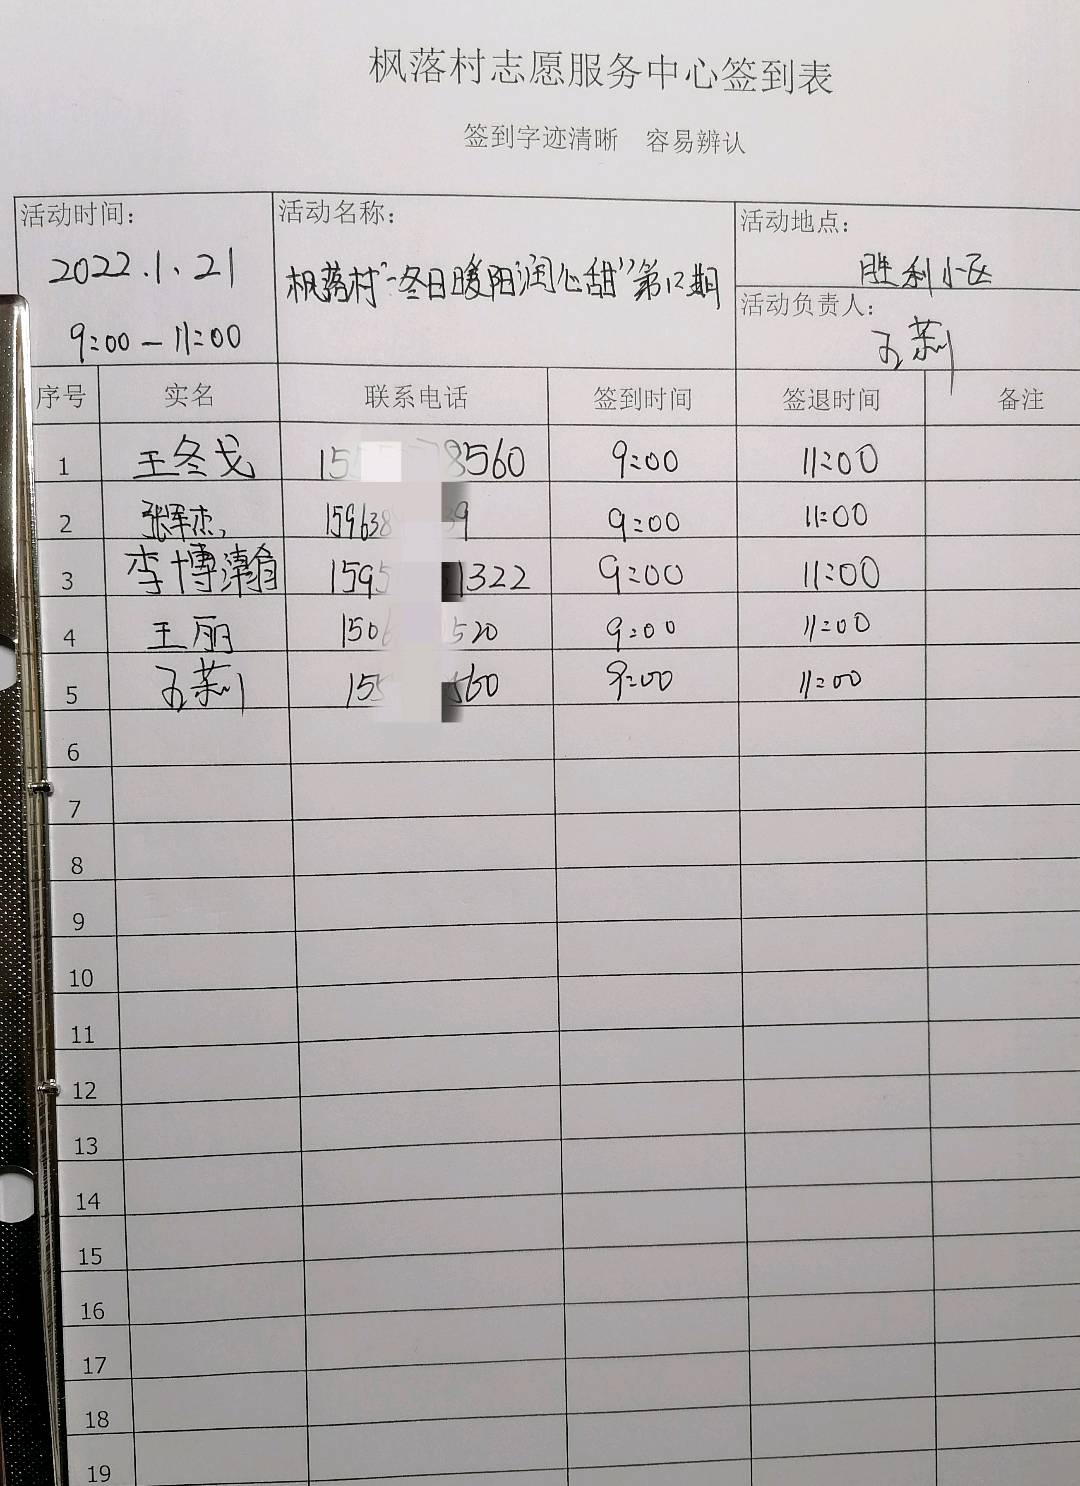 枫落村志愿服务中心签到表
签到字迹清晰 容易辨认
活动时间: 活动名称: 活动地点:
2022.1.21 枫落村“冬日暖阳润心甜”第12期 胜利小区
9:00-11:00 活动负责人:
王莉
序号 实名 联系电话 签到时间 签退时间 备注
1 王冬戈 15 8560 9:00 11:00
2 张军杰 159638 39 9:00 11:00
3 李博瀚 1595 1322 9:00 11:00
4 王丽 150 520 9:00 11:00
5 王莉 155 560 9:00 11:00
6
7
8
9
10
11
12
13
14
15
16
17
18
19